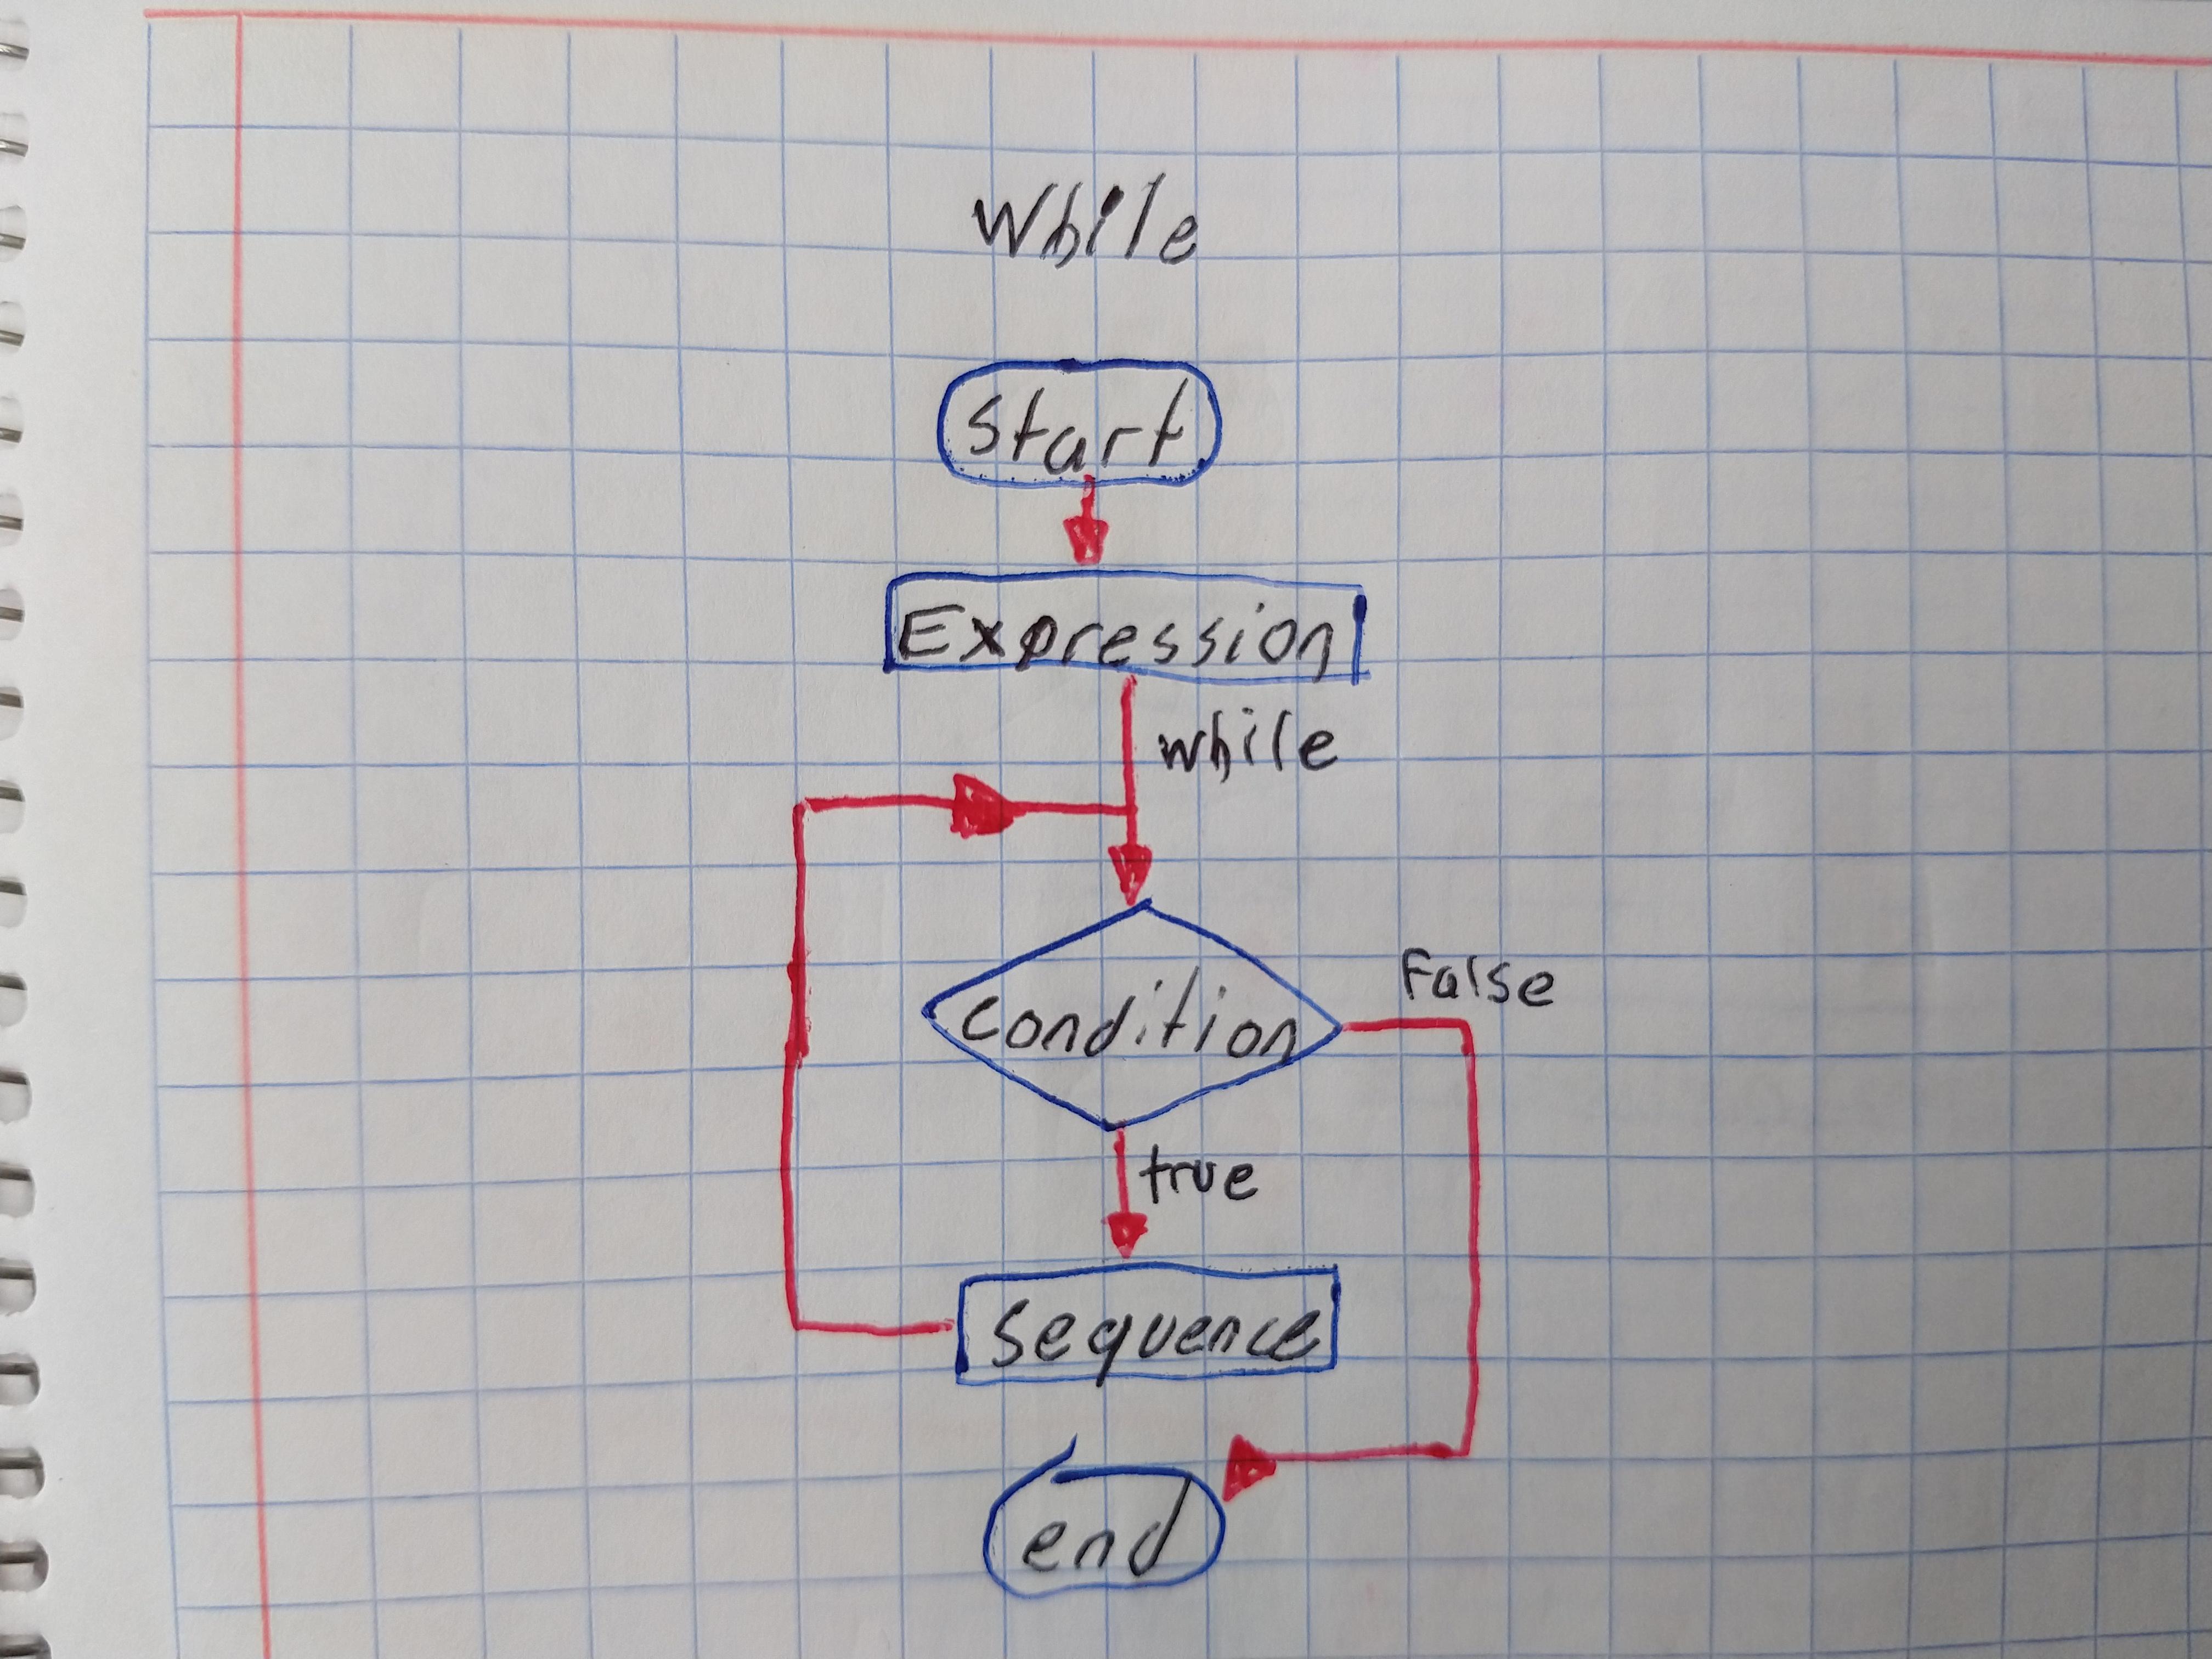 While
Start
Expression
while
False
condition
true
sequence
end